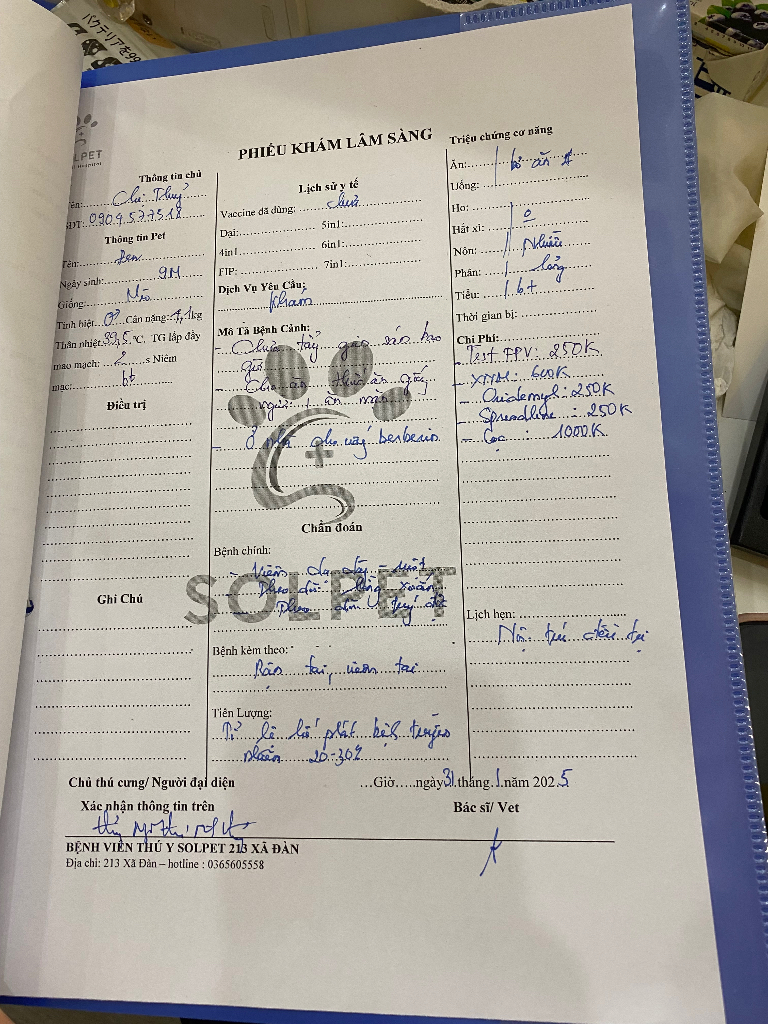 バクテリアを99
SOLPET
PHIẾU KHÁM LÂM SÀNG
Thông tin chủ
Tên: Chị Thuỷ
SĐT: 0904577518
Thông tin Pet
Tên: Ben
Ngày sinh: 9M
Giống: Mèo
Tính biệt: Cân nặng: 4,1kg
Thân nhiệt 39,5 °C, TG lấp đầy
mao mạch: 2 s Niêm
mạc: bt
Điều trị
Ghi Chú
Lịch sử y tế
Vaccine đã dùng: chưa
Dại: 5in1:
4in1 6in1:
FIP: 7in1:
Dịch Vụ Yêu Cầu:
Khám
Mô Tả Bệnh Cảnh:
- Chưa tẩy giun sán bao
giờ
- Cho ăn thức ăn giấy
người, ăn mặn
- Ở nhà cho uống berberin
SOLPET
Chẩn đoán
Bệnh chính:
- Viêm dạ dày - ruột
Theo dõi xoắn
Theo dõi
Bệnh kèm theo:
Rận tai, viêm tai
Tiên Lượng:
Tỉ lệ bố phát bệnh truyền
nhiễm 20-30%
Triệu chứng cơ năng
Ăn: bỏ ăn
Uống:
Ho:
Hắt xì: 0
Nôn: Nhiều
Phân: lỏng
Tiểu: bt
Thời gian bị:
Chi Phí:
- Test FPV: 250K
- XNM: 600K
- Oridemyl: 250K
- Spreadline: 250K
- Cọc: 1000K
Lịch hẹn:
Nội trú điều trị
Chủ thú cưng/ Người đại diện
...Giờ.....ngày 31 tháng 1 năm 2025
Xác nhận thông tin trên
Bác sĩ/ Vet
BỆNH VIỆN THÚ Y SOLPET 213 XÃ ĐÀN
Địa chỉ: 213 Xã Đàn – hotline : 0365605558